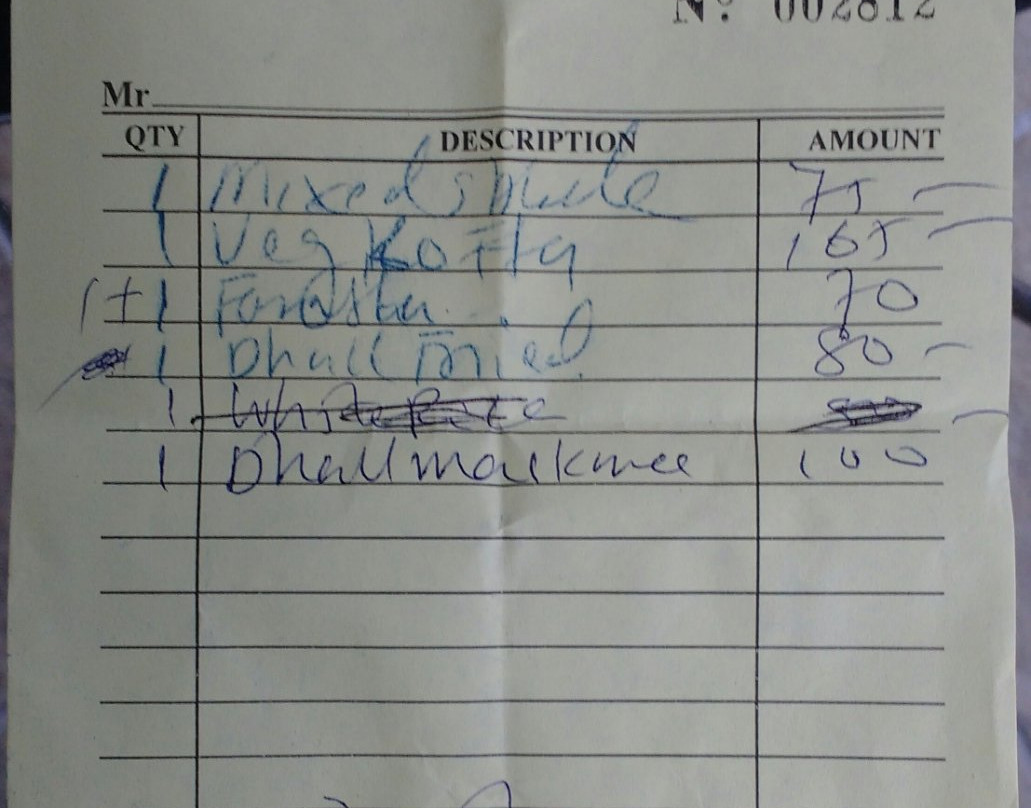 Nº 002812
Mr
QTY DESCRIPTION AMOUNT
1 Mixed 75
1 Veg Kofta 165
1+1 70
1 Dhall Fried 80
1 White Rice
1 Dhall 100